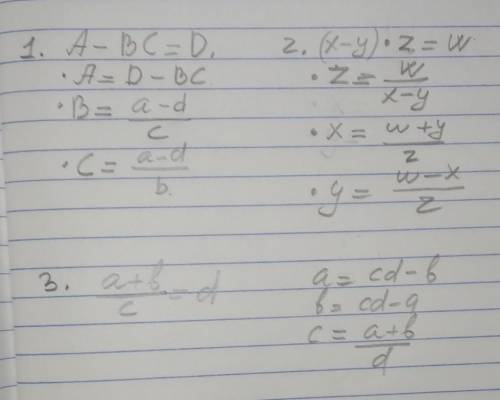 1. A - BC = D.
· A = D - BC
· B = a-d / c
· C = a-d / b.
2. (x-y) · z = w
· z = w / x-y
· x = w+y / z
· y = w-x / z
3. a+b / c = d
a = cd-b
b = cd-a
c = a+b / d